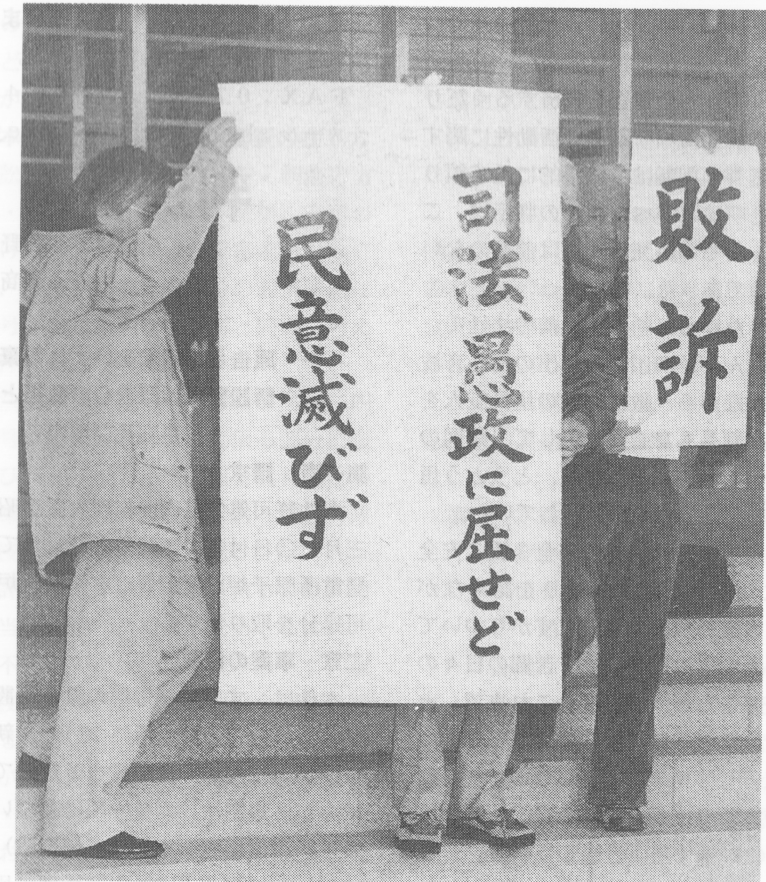 敗訴
司法、愚政に屈せど
民意滅びず